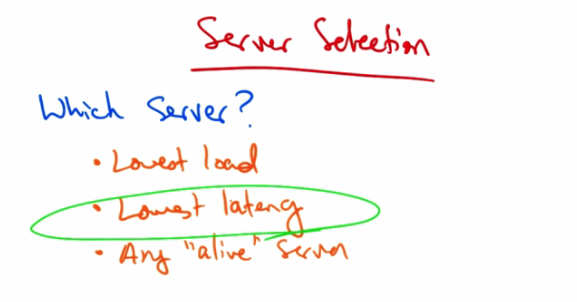 Server Selection
Which Server?
• Lowest load
• Lowest latency
• Any "alive" server